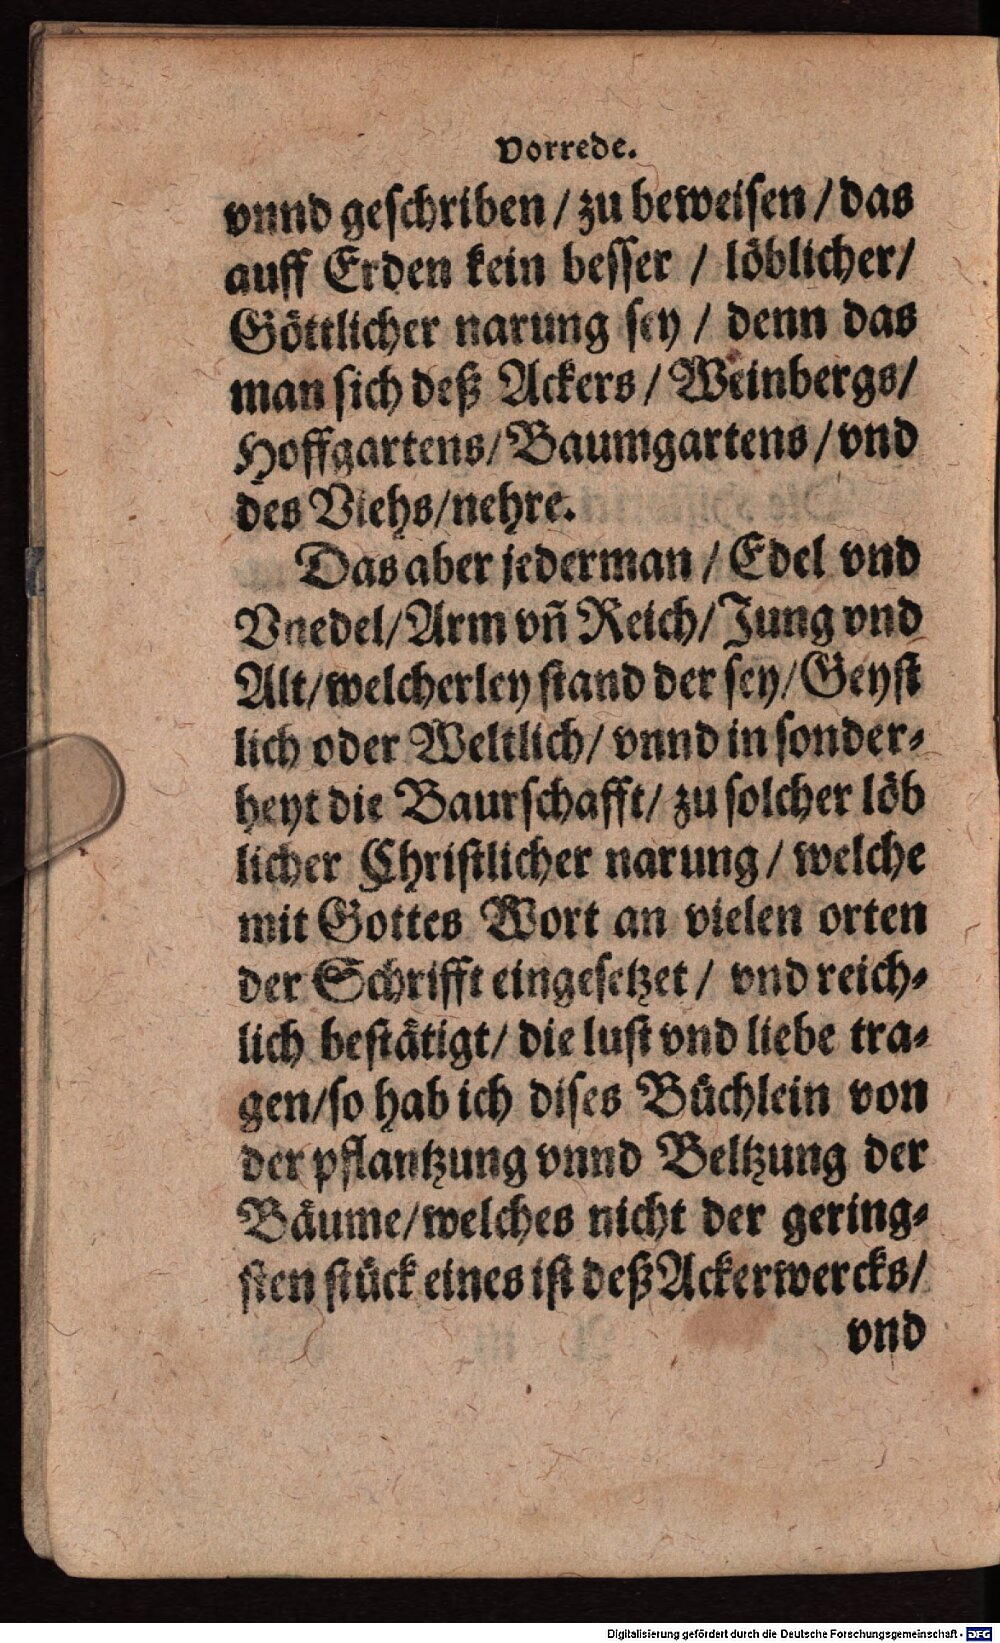 Vorrede.
vnnd geschriben / zu beweisen / das
auff Erden kein besser / löblicher /
Göttlicher narung sey / denn das
man sich deß Ackers / Weinbergs /
Hoffgartens / Baumgartens / vnd
des Viehs / nehre.
Das aber jederman / Edel vnd
Vnedel / Arm vñ Reich / Jung vnd
Alt / welcherley stand der sey / Geyst
lich oder Weltlich / vnnd in sonder⸗
heyt die Baurschafft / zu solcher löb
licher Christlicher narung / welche
mit Gottes Wort an vielen orten
der Schrifft eingesetzet / vnd reich⸗
lich bestätigt / die lust vnd liebe tra⸗
gen / so hab ich dises Büchlein von
der pflantzung vnnd Beltzung der
Bäume / welches nicht der gering⸗
sten stück eines ist deß Ackerwercks /
vnd
Digitalisierung gefördert durch die Deutsche Forschungsgemeinschaft - DFG